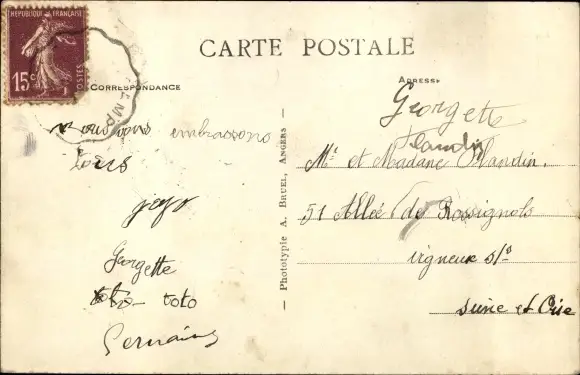 REPUBLIQUE FRANÇAISE
15c
POSTES
CARTE POSTALE
CORRESPONDANCE
ADRESSE
vous vous embrassons
tous
Georgette
toto toto
Germaine
— Phototypie A. BRUEL, ANGERS —
Georgette
flandin
Mr et Madame Flandin.
51 Allée de Rossignols
vigneux s/s
Seine et Oise